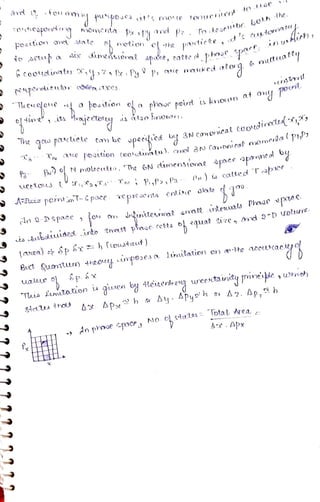 and it, for many purposes, it's more convenient to use
corresponding momenta Px, Py and Pz. To describe both the
position and state of motion of the particle, it's customary
to setup a six dimensional space, called phase space, in which
6 coordinates x, y, z, Px, Py & Pz are marked along 6 mutually
perpendicular axes.
Therefore if a position of a phase point is known at any instant
of time, its trajectory is also known.
The gas particle can be specified by 3N canonical coordinates
are position coordinates and 3N canonical momenta
of N molecules. The 6N dimensional space spanned by
vectors is called Γ space.
point in Γ-space represents entire state of gas.
In 2-D space, for an small intervals phase space
is subdivided into small phase cells of equal size, and 2-D volume
(area) of δp δx = h (constant)
But Quantum theory imposes a limitation on the accuracy of
value of δp δx
This limitation is given by Heisenberg uncertainity principle, which
states that Δx ΔPx ≥ h & Δy . ΔPy ≥ h & Δz . ΔPz ≥ h
In phase space, No of states = Total Area
Δx . ΔPx
Px
x